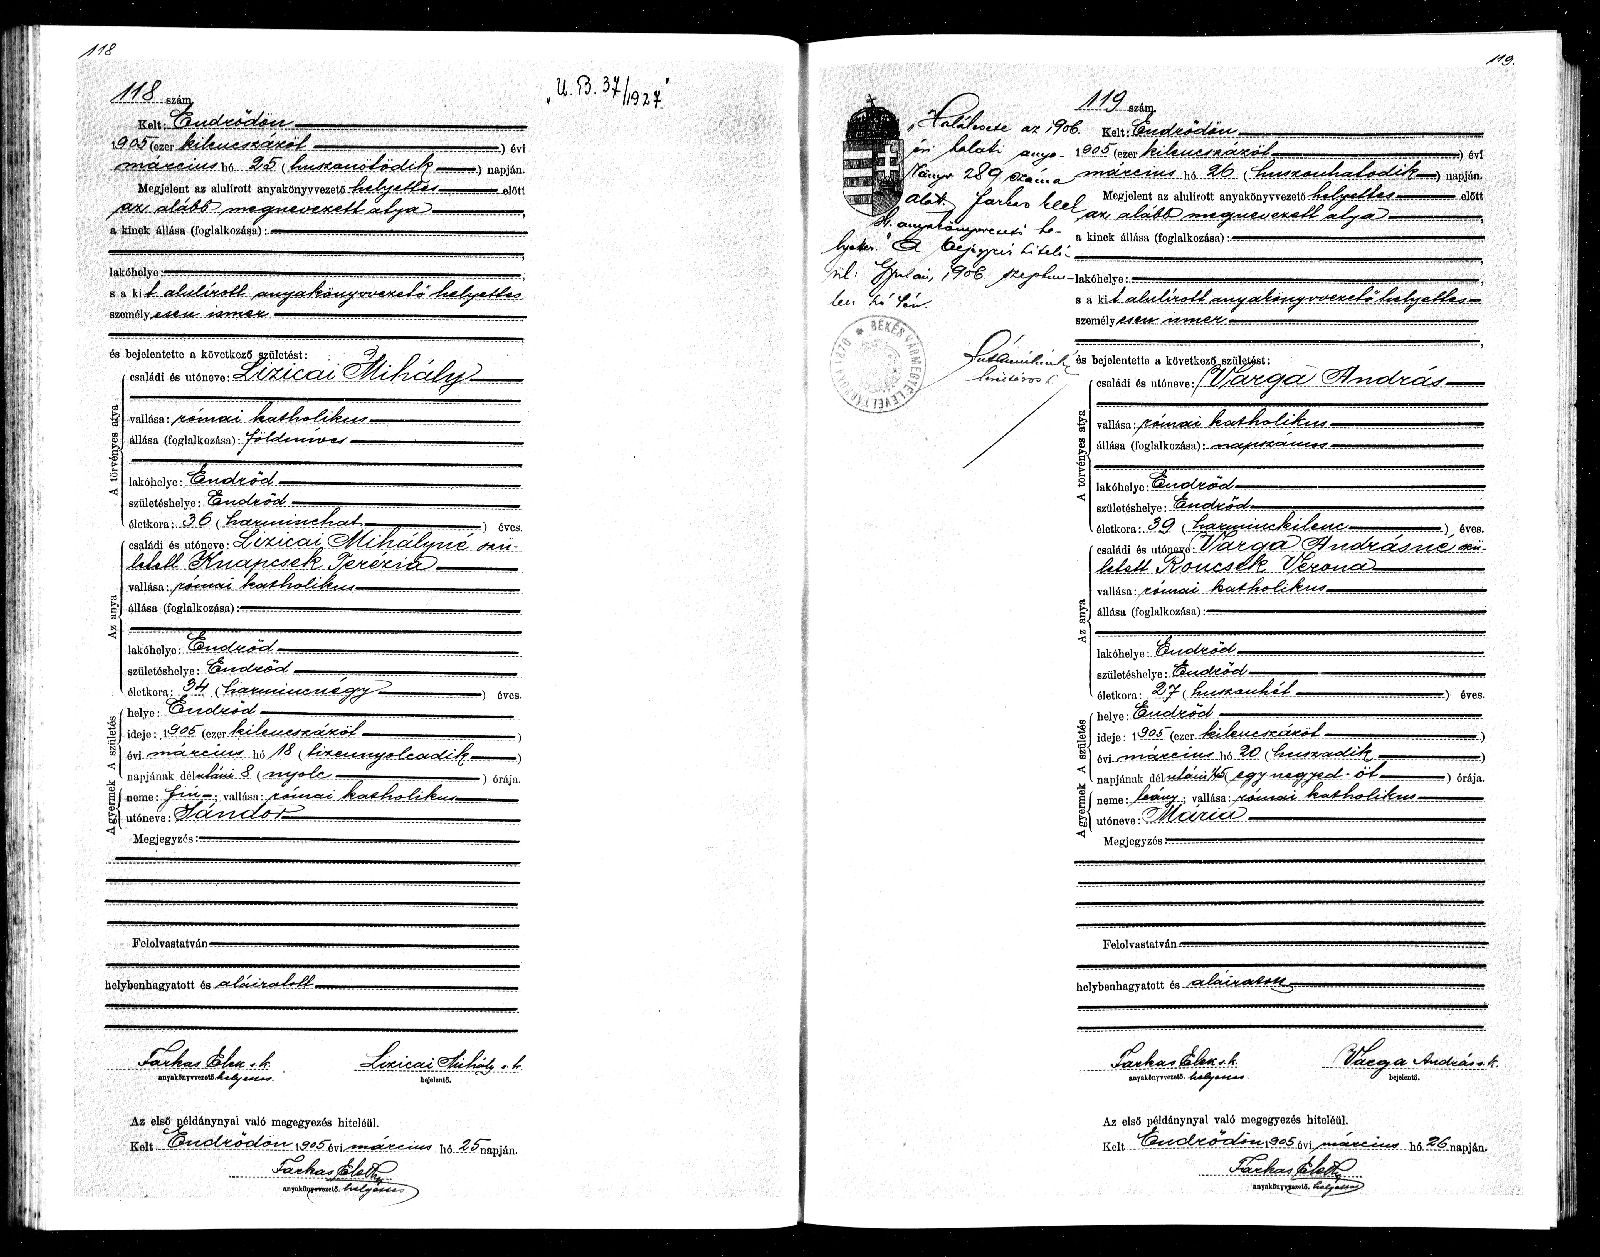 118
118 szám.
„U. B. 37/1927”
Kelt: Endrődön
1905 (ezer kilenczszázöt) évi
március hó 25 (huszonötödik) napján.
Megjelent az alulirott anyakönyvvezető helyettes előtt
az alább megnevezett atya,
a kinek állása (foglalkozása):
lakóhelye:
s a kit alulírott anyakönyvvezető helyettes
személyesen ismer
és bejelentette a következő születést:
A törvényes atya
családi és utóneve: Lizicai Mihály
vallása: római katholikus
állása (foglalkozása): földmíves
lakóhelye: Endrőd
születéshelye: Endrőd
életkora: 36 (harminchat) éves.
Az anya
családi és utóneve: Lizicai Mihályné szü-
letett Knapcsek Terézia
vallása: római katholikus
állása (foglalkozása):
lakóhelye: Endrőd
születéshelye: Endrőd
életkora: 34 (harmincnégy) éves.
A születés
helye: Endrőd
ideje: 1905 (ezer kilenczszázöt)
évi március hó 18 (tizennyolcadik)
napjának délutáni 8 (nyolc) órája.
A gyermek
neme: fiú; vallása: római katholikus
utóneve: Sándor
Megjegyzés:
Felolvastatván
helybenhagyatott és aláiratott
Farkas Elek s. k. Lizicai Mihály s. k.
anyakönyvvezető. helyettes bejelentő.
Az első példánynyal való megegyezés hiteléül.
Kelt Endrődön 1905 évi március hó 25 napján.
Farkas Elek
anyakönyvvezető. helyettes
119.
119 szám.
„Halálesete az 1906.
évi halati anya-
könyv 289 száma
alatt. Farkas Elek
h. anyakönyvvezető he-
lyettes.” A bejegyzés hitelé-
ül: Gyulai, 1906 szeptem-
ber hó
BÉKÉS VÁRMEGYE LEVÉLTÁROKA 1870
levéltáros
Kelt: Endrődön
1905 (ezer kilenczszázöt) évi
március hó 26 (huszonhatodik) napján.
Megjelent az alulirott anyakönyvvezető helyettes előtt
az alább megnevezett atya,
a kinek állása (foglalkozása):
lakóhelye:
s a kit alulírott anyakönyvvezető helyettes
személyesen ismer
és bejelentette a következő születést:
A törvényes atya
családi és utóneve: Varga András
vallása: római katholikus
állása (foglalkozása): napszámos
lakóhelye: Endrőd
születéshelye: Endrőd
életkora: 39 (harminckilenc) éves.
Az anya
családi és utóneve: Varga Andrásné szü-
letett Roncsek Verona
vallása: római katholikus
állása (foglalkozása):
lakóhelye: Endrőd
születéshelye: Endrőd
életkora: 27 (huszonhét) éves.
A születés
helye: Endrőd
ideje: 1905 (ezer kilenczszázöt)
évi március hó 20 (huszadik)
napjának délutáni ¼5 (egynegyed-öt) órája.
A gyermek
neme: leány; vallása: római katholikus
utóneve: Mária
Megjegyzés:
Felolvastatván
helybenhagyatott és aláiratott
Farkas Elek s. k. Varga András s. k.
anyakönyvvezető. helyettes bejelentő.
Az első példánynyal való megegyezés hiteléül.
Kelt Endrődön 1905 évi március hó 26 napján.
Farkas Elek
anyakönyvvezető. helyettes